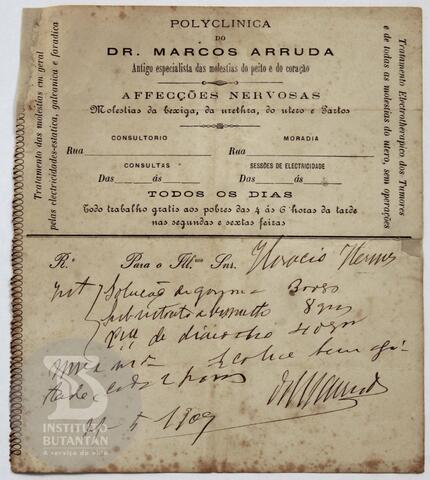 POLYCLINICA
DO
DR. MARCOS ARRUDA
Antigo especialista das molestias do peito e do coração
AFFECÇÕES NERVOSAS
Molestias da bexiga, da urethra, do utero e Partos
CONSULTORIO
MORADIA
Rua
Rua
CONSULTAS
SESSÕES DE ELECTRICIDADE
Das ás
Das ás
TODOS OS DIAS
Todo trabalho gratis aos pobres das 4 ás 6 horas da tarde
nas segundas e sextas feiras
Tratamento das molestias em geral
pelas electricidades-estatica, galvanica e faradica
Tratamento Electrotherapico dos Tumores
e de todas as molestias do utero, sem operações
R.e Para o Ill.mo Snr. Horacio
Solução de gomma
Subnitrato
de
colher bem
2 horas
5 1909
INSTITUTO
BUTANTAN
A serviço da vida